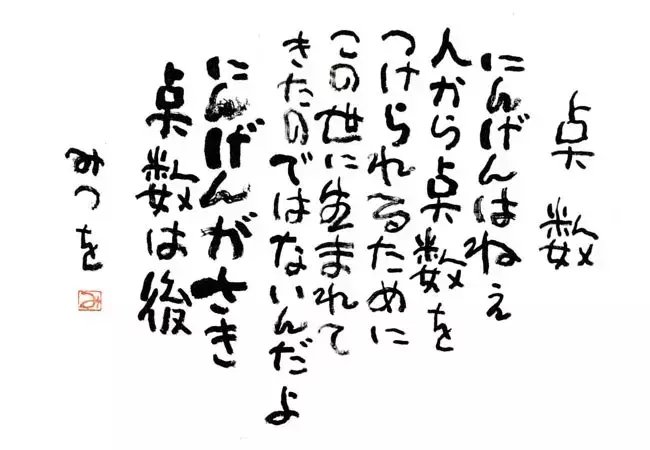 点数
にんげんはねぇ
人から点数を
つけられるために
この世に生まれて
きたのではないんだよ
にんげんがさき
点数は後
みつを
み